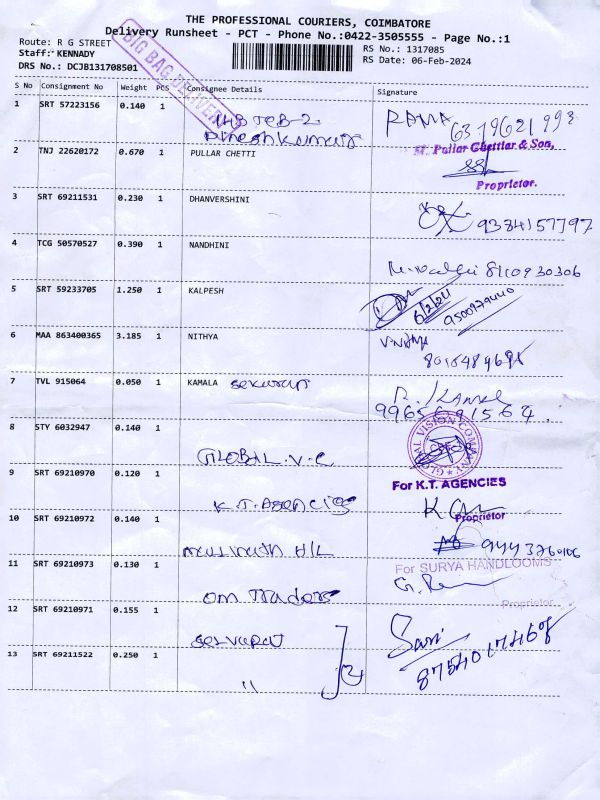 THE PROFESSIONAL COURIERS, COIMBATORE
Delivery Runsheet - PCT - Phone No.:0422-3505555 - Page No.:1
Route: R G STREET
RS No.: 1317085
Staff: KENNADY
RS Date: 06-Feb-2024
DRS No.: DCJB131708501
BIG BAG DELIVERY
S No Consignment No Weight PCS Consignee Details Signature
1 SRT 57223156 0.140 1 Dineshkumar RAMA
2 TNJ 22620172 0.670 1 PULLAR CHETTI M. Pullar Chettiar & Son,
Proprietor.
3 SRT 69211531 0.230 1 DHANVERSHINI 9384157797
4 TCG 50570527 0.390 1 NANDHINI 8110930306
5 SRT 59233705 1.250 1 KALPESH 6/2/24 9500979440
6 MAA 863400365 3.185 1 NITHYA V.Nithya
7 TVL 915064 0.050 1 KAMALA
8 STY 6032947 0.140 1 GLOBAL.V.C GLOBAL VISION COMPANY
9 SRT 69210970 0.120 1 K.T.Agencies For K.T. AGENCIES
Proprietor
10 SRT 69210972 0.140 1 H/L
11 SRT 69210973 0.130 1 Om Traders For SURYA HANDLOOMS
Proprietor
12 SRT 69210971 0.155 1 Selvaraj Sari
13 SRT 69211522 0.250 1 " 2